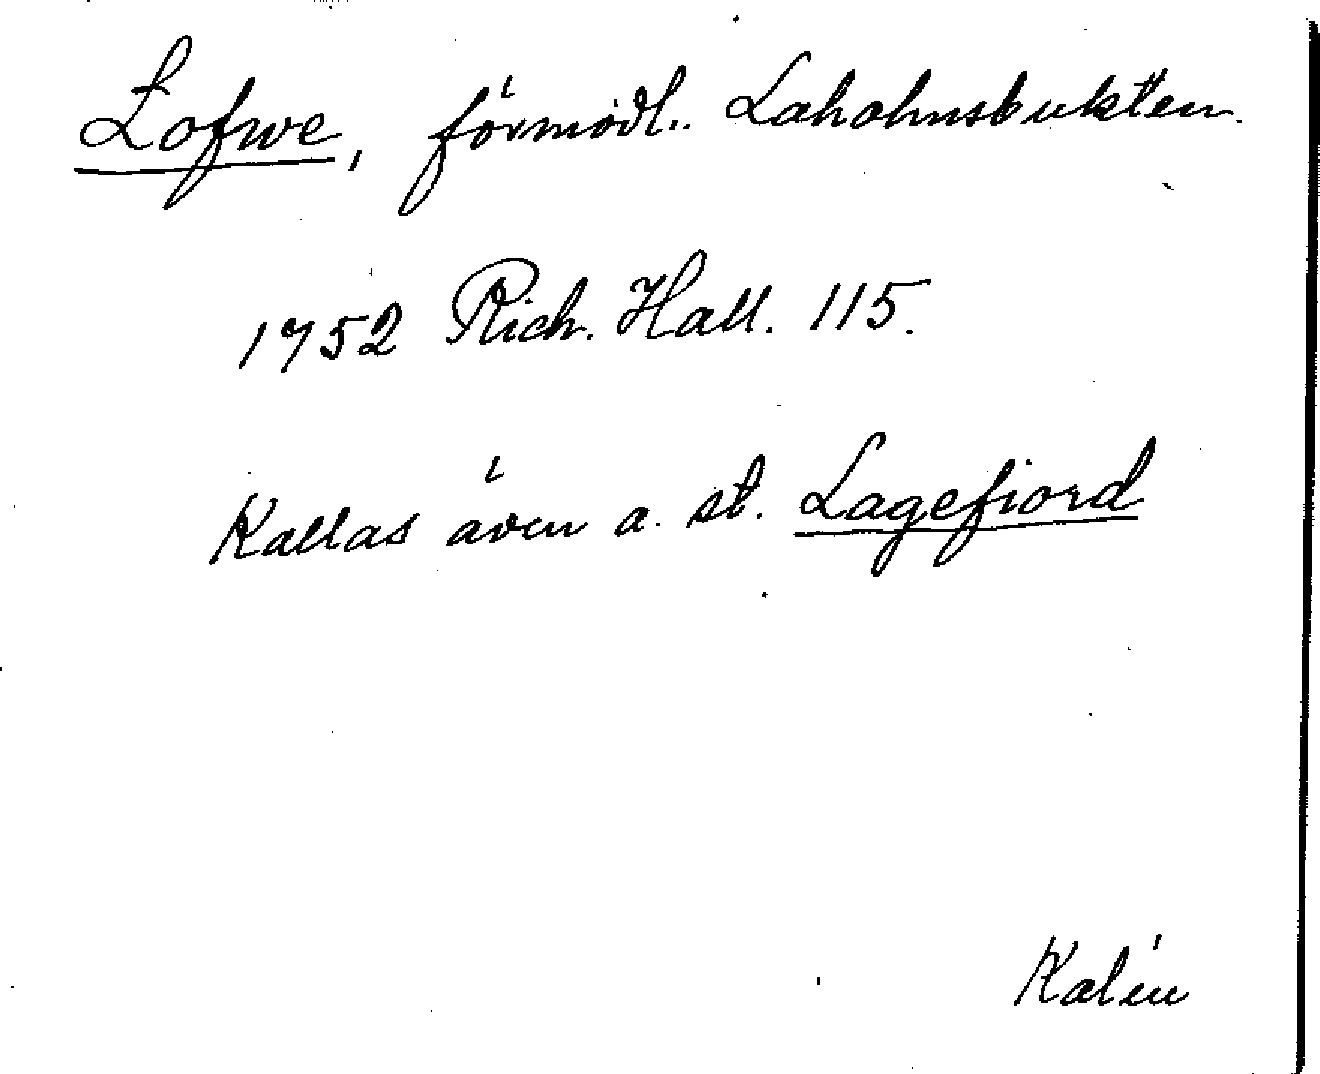 Lofwe, förmodl. Laholmsbukten.
1752 Rich. Hall. 115.
Kallas även a. st. Lagefiord
Kalén